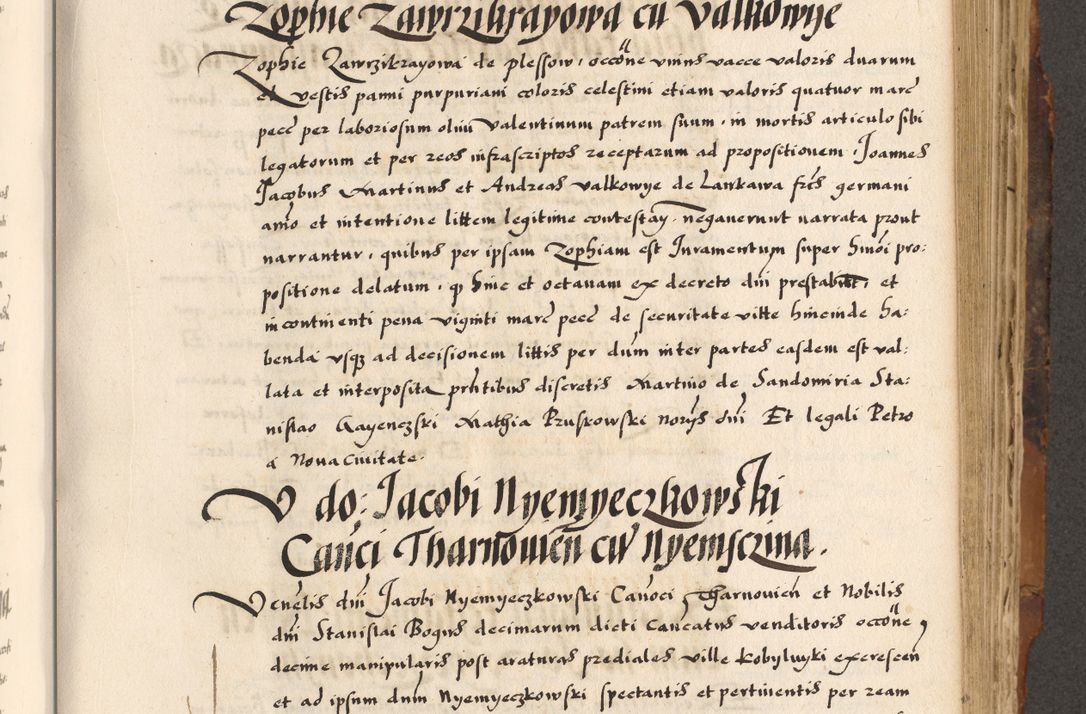 Zophie Zawrzikrayowa cu Valkowye
Zophie Zawrzikrayowa de plessow, occone unius vacce valoris duarum
et vestis panni purpuriani coloris celestini etiam valoris quatuor marc
pecc per laboriosum olim Valentinum patrem suum, in mortis articulo sibi
legatorum et per reos infrascriptos receptarum ad propositionem, Joannes
Jacobus Martinus et Andreas Valkowye de Lankawa frēs germani
animo et intentione littem legitime contestan, negaverunt narrata prout
narrantur, quibus per ipsam Zophiam est Juramentum super hmōi pro:
positione delatum, q hinc et octavam ex decreto dni prestabunt, et
incontinenti pena viginti marc pecc de securitate vitte hincinde ha:
benda usq ad decisionem littis per dnm inter partes easdem est val:
lata et interposita prntibus discretis Martino de Sandomiria Sta:
nislao Kayenczski Mathia Pruskowski norys dni Et legali Petro
a Nova Civitate.
V do: Jacobi Nyemyeczkowski
Canci Tharnovien cu Nyemsczina.
Venelis dni Jacobi Nyemyeczkowski Canoci Tharnovien et Nobilis
dni Stanislai Bogus decimarum dicti Cancatus venditoris occone
decime manipularis post araturas prediales ville Kobylwyki excrescen
et ad ipsum dnm Nyemyeczkowski spectantis et pertinentis per ream